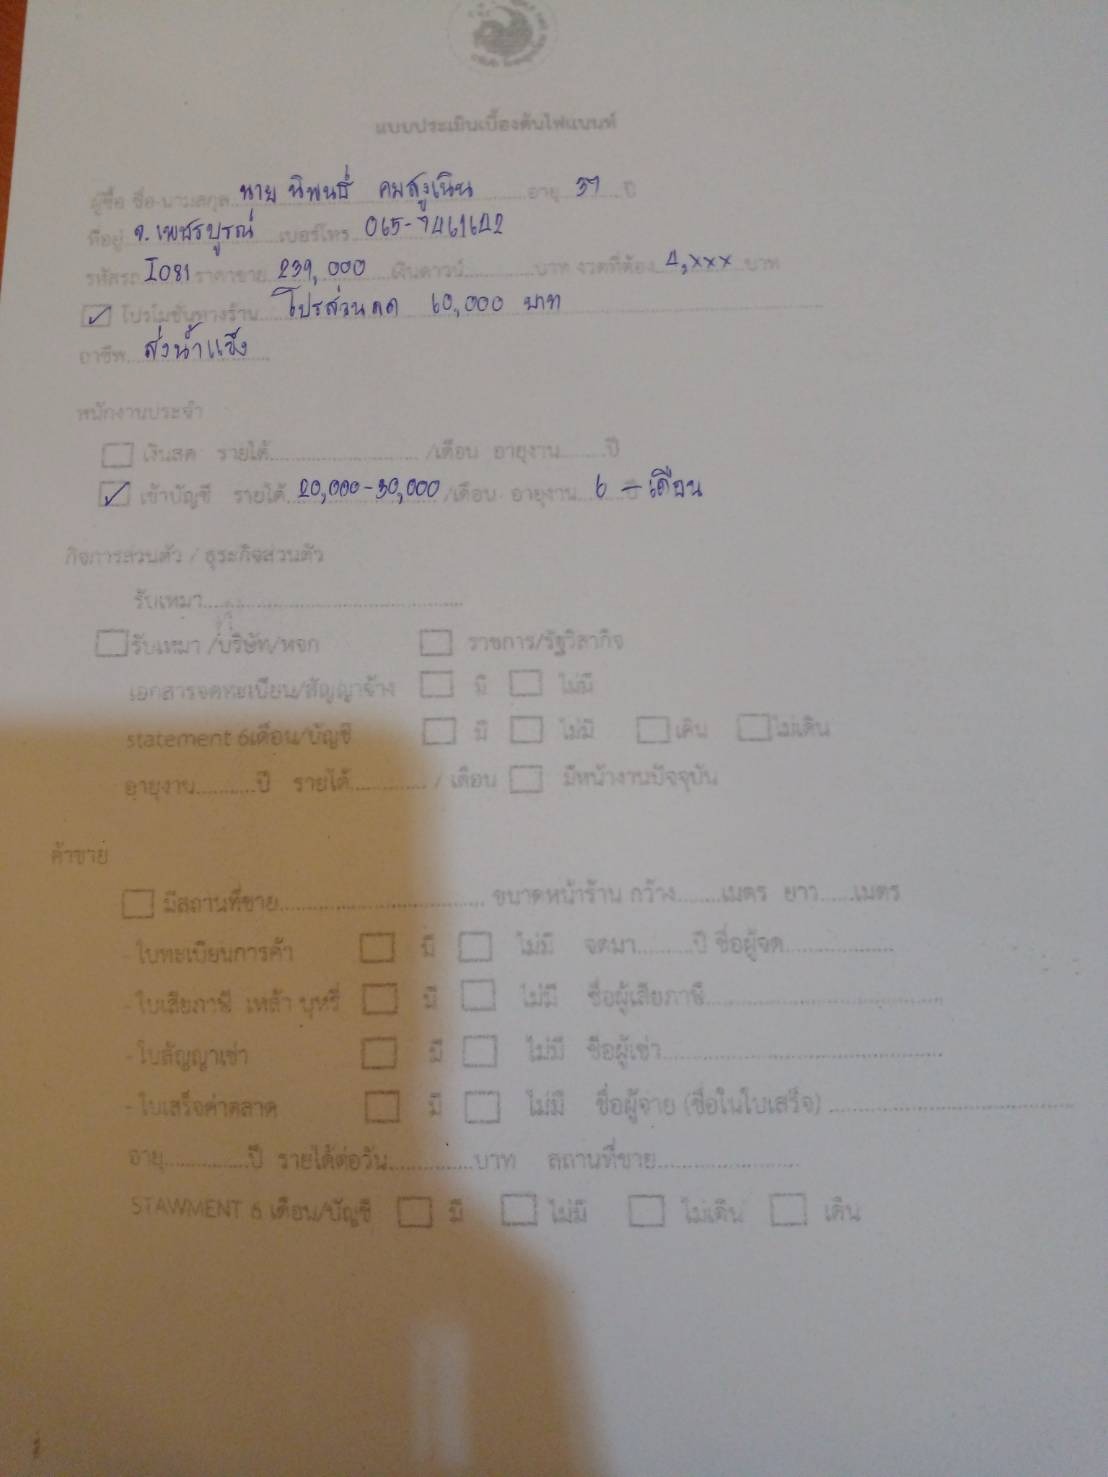 แบบประเมินเบื้องต้นไฟแนนท์
ผู้ซื้อ ชื่อ-นามสกุล นาย นิพนธ์ คมสูงเนิน อายุ 37 ปี
ที่อยู่ จ.เพชรบูรณ์ เบอร์โทร 065-9461642
รหัสรถ I081 ราคาขาย 239,000 เงินดาวน์.............บาท งวดที่ต้อง 4,xxx บาท
☑ โปรโมชั่นทางร้าน โปรส่วนลด 60,000 บาท
อาชีพ ส่งน้ำแข็ง
พนักงานประจำ
☐ เงินสด รายได้............................/เดือน อายุงาน.........ปี
☑ เข้าบัญชี รายได้ 20,000-30,000 /เดือน อายุงาน 6 เดือน
กิจการส่วนตัว / ธุระกิจส่วนตัว
รับเหมา..................................................
☐ รับเหมา /บริษัท/หจก ☐ ราชการ/รัฐวิสากิจ
เอกสารจดทะเบียน/สัญญาจ้าง ☐ มี ☐ ไม่มี
statement 6เดือน/บัญชี ☐ มี ☐ ไม่มี ☐ เดิน ☐ ไม่เดิน
อายุงาน...........ปี รายได้............../ เดือน ☐ มีหน้างานปัจจุบัน
ค้าขาย
☐ มีสถานที่ขาย....................................... ขนาดหน้าร้าน กว้าง........เมตร ยาว......เมตร
- ใบทะเบียนการค้า ☐ มี ☐ ไม่มี จดมา..........ปี ชื่อผู้จด....................
- ใบเสียภาษี เหล้า บุหรี่ ☐ มี ☐ ไม่มี ชื่อผู้เสียภาษี............................................
- ใบสัญญาเช่า ☐ มี ☐ ไม่มี ชื่อผู้เช่า....................................................
- ใบเสร็จค่าตลาด ☐ มี ☐ ไม่มี ชื่อผู้จ่าย (ชื่อในใบเสร็จ) .............................................
อายุ...............ปี รายได้ต่อวัน...............บาท สถานที่ขาย..........................
STAWMENT 6 เดือน/บัญชี ☐ มี ☐ ไม่มี ☐ ไม่เดิน ☐ เดิน